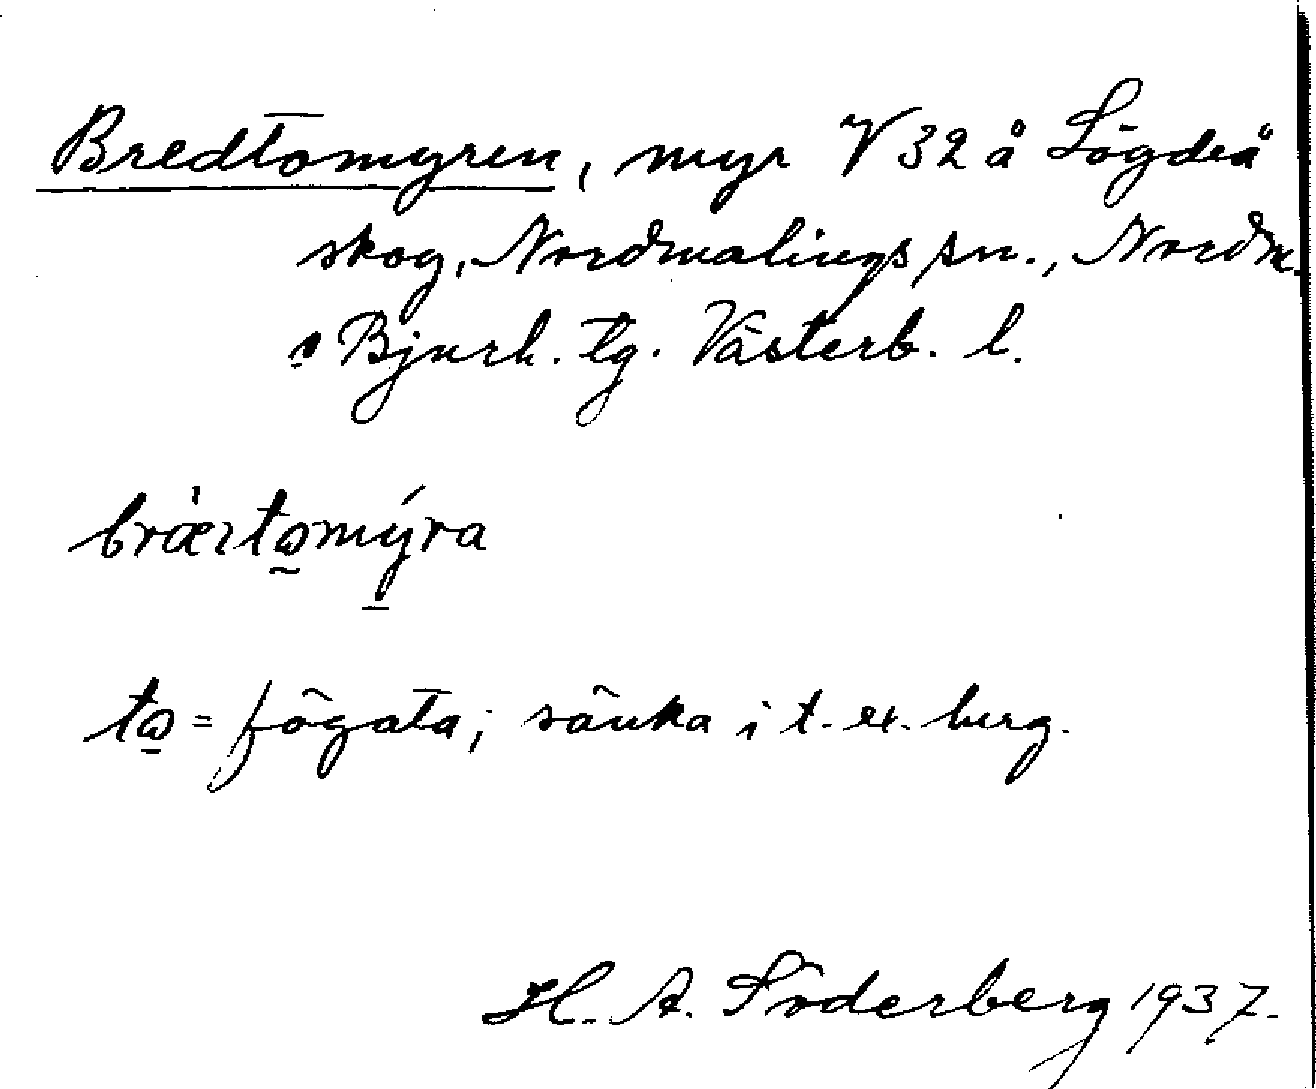 Bredtomyren, myr V 32 å Lögdeå
skog, Nordmalings sn., Nordm.
o Bjurh. tg. Västerb. l.
bræ̀ıto̰mýra
to̱ = fögata; sänka i t. ex. berg.
H. A. Söderberg 1937.